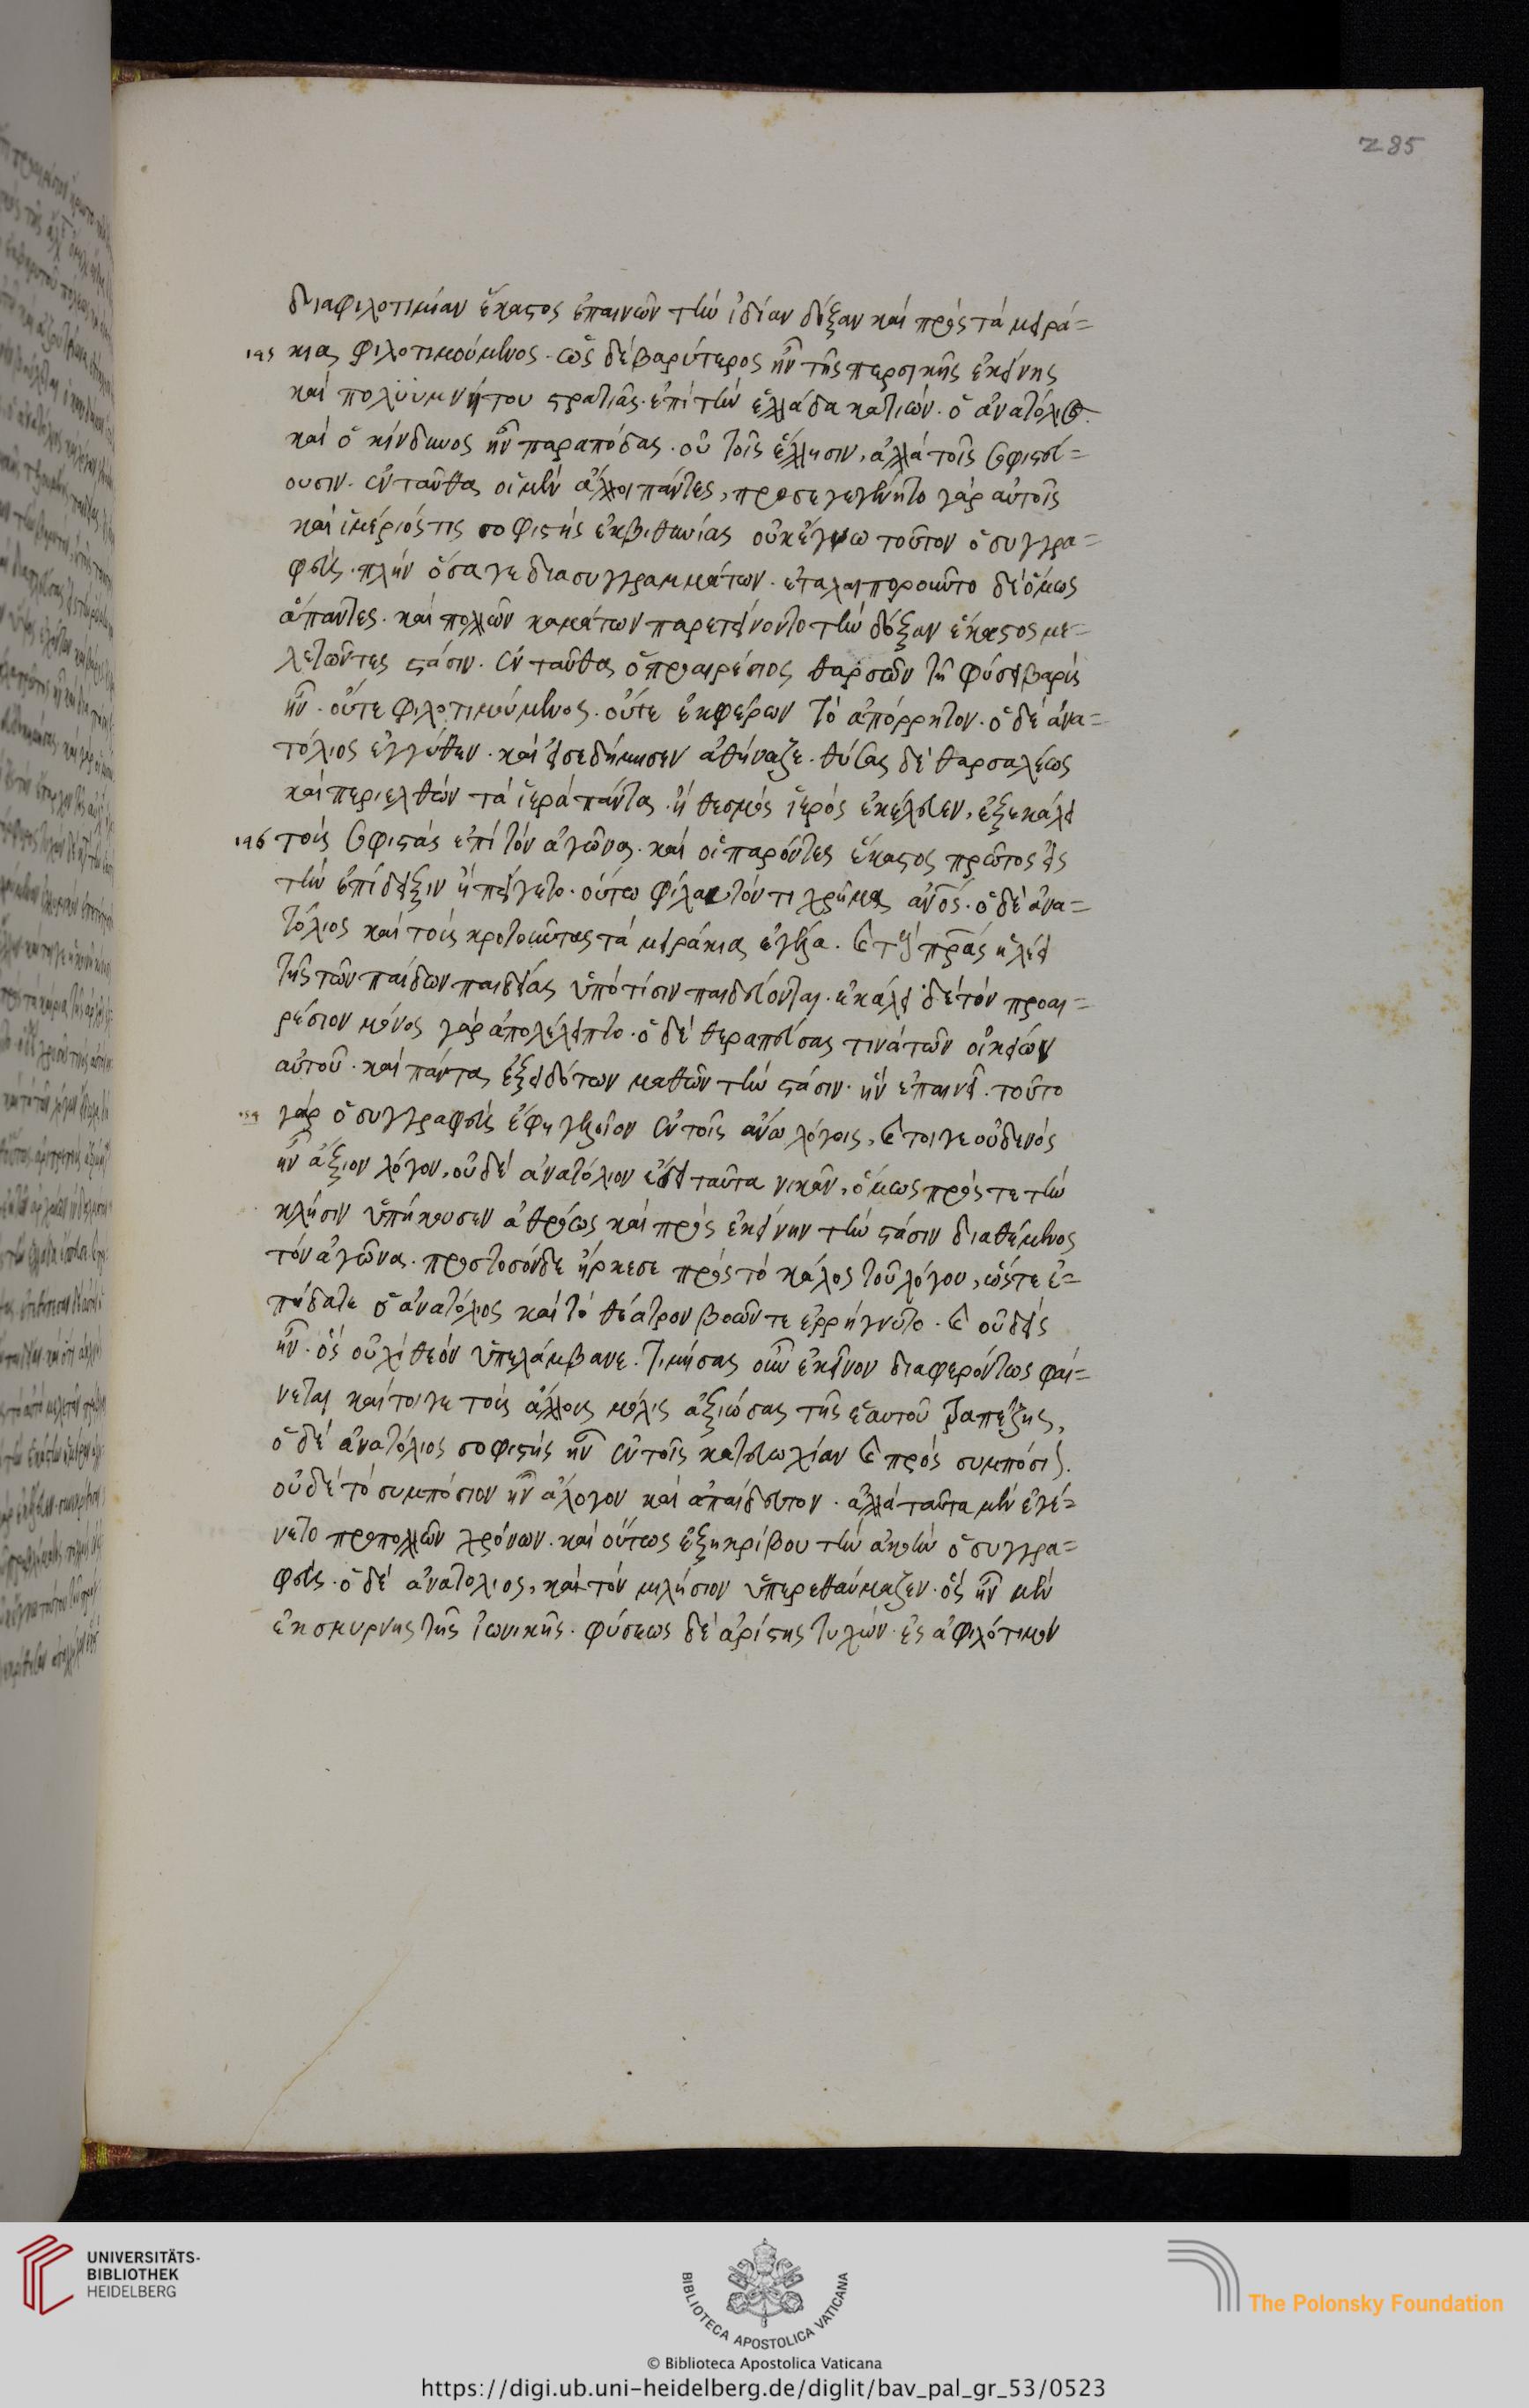 285
διαφιλοτιμίαν ἕκαστος ἐπαινῶν τὴν ἰδίαν δόξαν καὶ πρὸς τὰ μειρά=
195 κια φιλοτιμούμενος. ὡς δὲ βαρύτερος ἦν τῆς περσικῆς ἐκείνης
καὶ πολυϋμνήτου στρατιᾶς. ἐπὶ τὴν ἑλλάδα κατιών. ὁ ἀνατόλιος.
καὶ ὁ κίνδυνος ἦν παραπόδας. οὐ τοῖς ἕλλησιν, ἀλλὰ τοῖς σοφιστεύ=
ουσιν. ἐνταῦθα οἱ μὲν ἄλλοι πάντες, προσεγεγένητο γὰρ αὐτοῖς
καὶ ἱμέριός τις σοφιστὴς ἐκβιθυνίας οὐκ ἔγνω τοῦτον ὁ συγγρα=
φεὺς. πλὴν ὅσα γε διασυγγραμμάτων. ἐταλαιπωροῦντο δὲ ὅμως
ἅπαντες. καὶ πολλῶν καμάτων παρετείνοντο τὴν δόξαν ἕκαστος με=
λετῶντες στάσιν. ἐνταῦθα ὁ προαιρέσιος θαρσῶν τῇ φύσει βαρὺς
ἦν. οὔτε φιλοτιμούμενος. οὔτε ἐκφέρων τὸ ἀπόρρητον. ὁ δὲ ἀνα=
τόλιος ἐγγύθεν. καὶ εἰσεδήμησεν ἀθήναζε. θύσας δὲ θαρσαλέως
καὶ περιελθὼν τὰ ἱερὰ πάντα. ᾗ θεσμὸς ἱερὸς ἐκέλευεν, ἐξεκάλει
196 τοὺς σοφιστὰς ἐπὶ τὸν ἀγῶνα. καὶ οἱ παρόντες ἕκαστος πρῶτος εἰς
τὴν ἐπίδειξιν ἠπείγετο. οὕτω φίλαυτόν τι χρῆμα ἄνος. ὁ δὲ ἀνα=
τόλιος καὶ τοὺς κροτοῦντας τὰ μειράκια ἐγέλα. καὶ τοὺς πρας ἠλέει
τῆς τῶν παίδων παιδείας ὑπὸ τίσιν παιδεύονται. ἐκάλει δὲ τὸν προαι=
ρέσιον μόνος γὰρ ἀπολέλειπτο. ὁ δὲ θεραπεύσας τινὰ τῶν οἰκείων
αὐτοῦ. καὶ πάντα ἐξειδότων μαθὼν τὴν στάσιν. ἣν ἐπαινεῖ. τοῦτο
γὰρ ὁ συγγραφεὺς ἔφη γελοῖον ἐν τοῖς ἄνω λόγοις, καὶ τοιγε οὐδενὸς
ἦν ἄξιον λόγου, οὐδὲ ἀνατόλιον ἔδει ταῦτα νικᾶν, ὅμως πρός τε τὴν
κλῆσιν ὑπήκουσεν ἀθρόως καὶ πρὸς ἐκείνην τὴν στάσιν διαθέμενος
τὸν ἀγῶνα. προστοσόνδε ἤρκεσε πρὸς τὸ κάλος τοῦ λόγου, ὥστε ἐ=
πήδατε ὁ ἀνατόλιος καὶ τὸ θέατρον βοῶν τε ἐρρήγνυτο. καὶ οὐδεὶς
ἦν. ὃς οὐχὶ θεὸν ὑπελάμβανε. τιμήσας οὖν ἐκεῖνον διαφερόντως φαί=
νεται καίτοιγε τοὺς ἄλλους μόλις ἀξιώσας τῆς ἑαυτοῦ τραπέζης,
ὁ δὲ ἀνατόλιος σοφιστὴς ἦν ἐν τοῖς κατευωχίαν καὶ πρὸς συμπόσιον.
οὐδὲ τὸ συμπόσιον ἦν ἄλογον καὶ ἀπαίδευτον. ἀλλὰ ταῦτα μὲν ἐγέ=
νετο προπολλῶν χρόνων. καὶ οὕτως ἐξηκρίβου τὴν ἀκοὴν ὁ συγγρα=
φεὺς. ὁ δὲ ἀνατόλιος, καὶ τὸν μιλήσιον ὑπερεθαύμαζεν. ὃς ἦν μὲν
ἐκσμύρνης τῆς ἰωνικῆς. φύσεως δὲ ἀρίστης τυχὼν. ἐς ἀφιλότιμον
UNIVERSITÄTS-
BIBLIOTHEK
HEIDELBERG
BIBLIOTECA APOSTOLICA VATICANA
The Polonsky Foundation
© Biblioteca Apostolica Vaticana
https://digi.ub.uni-heidelberg.de/diglit/bav_pal_gr_53/0523